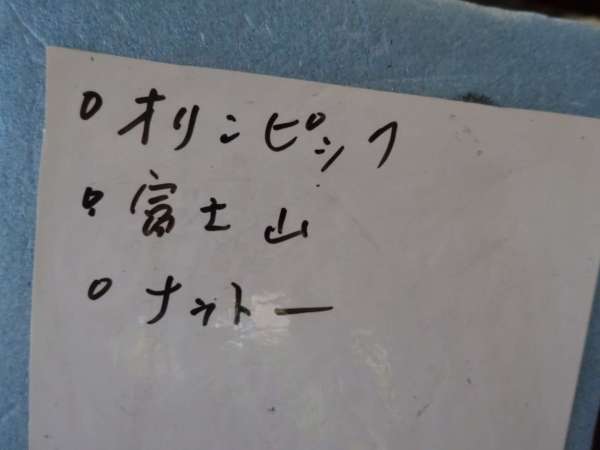 ○ オリンピック
○ 富士山
○ ナットー